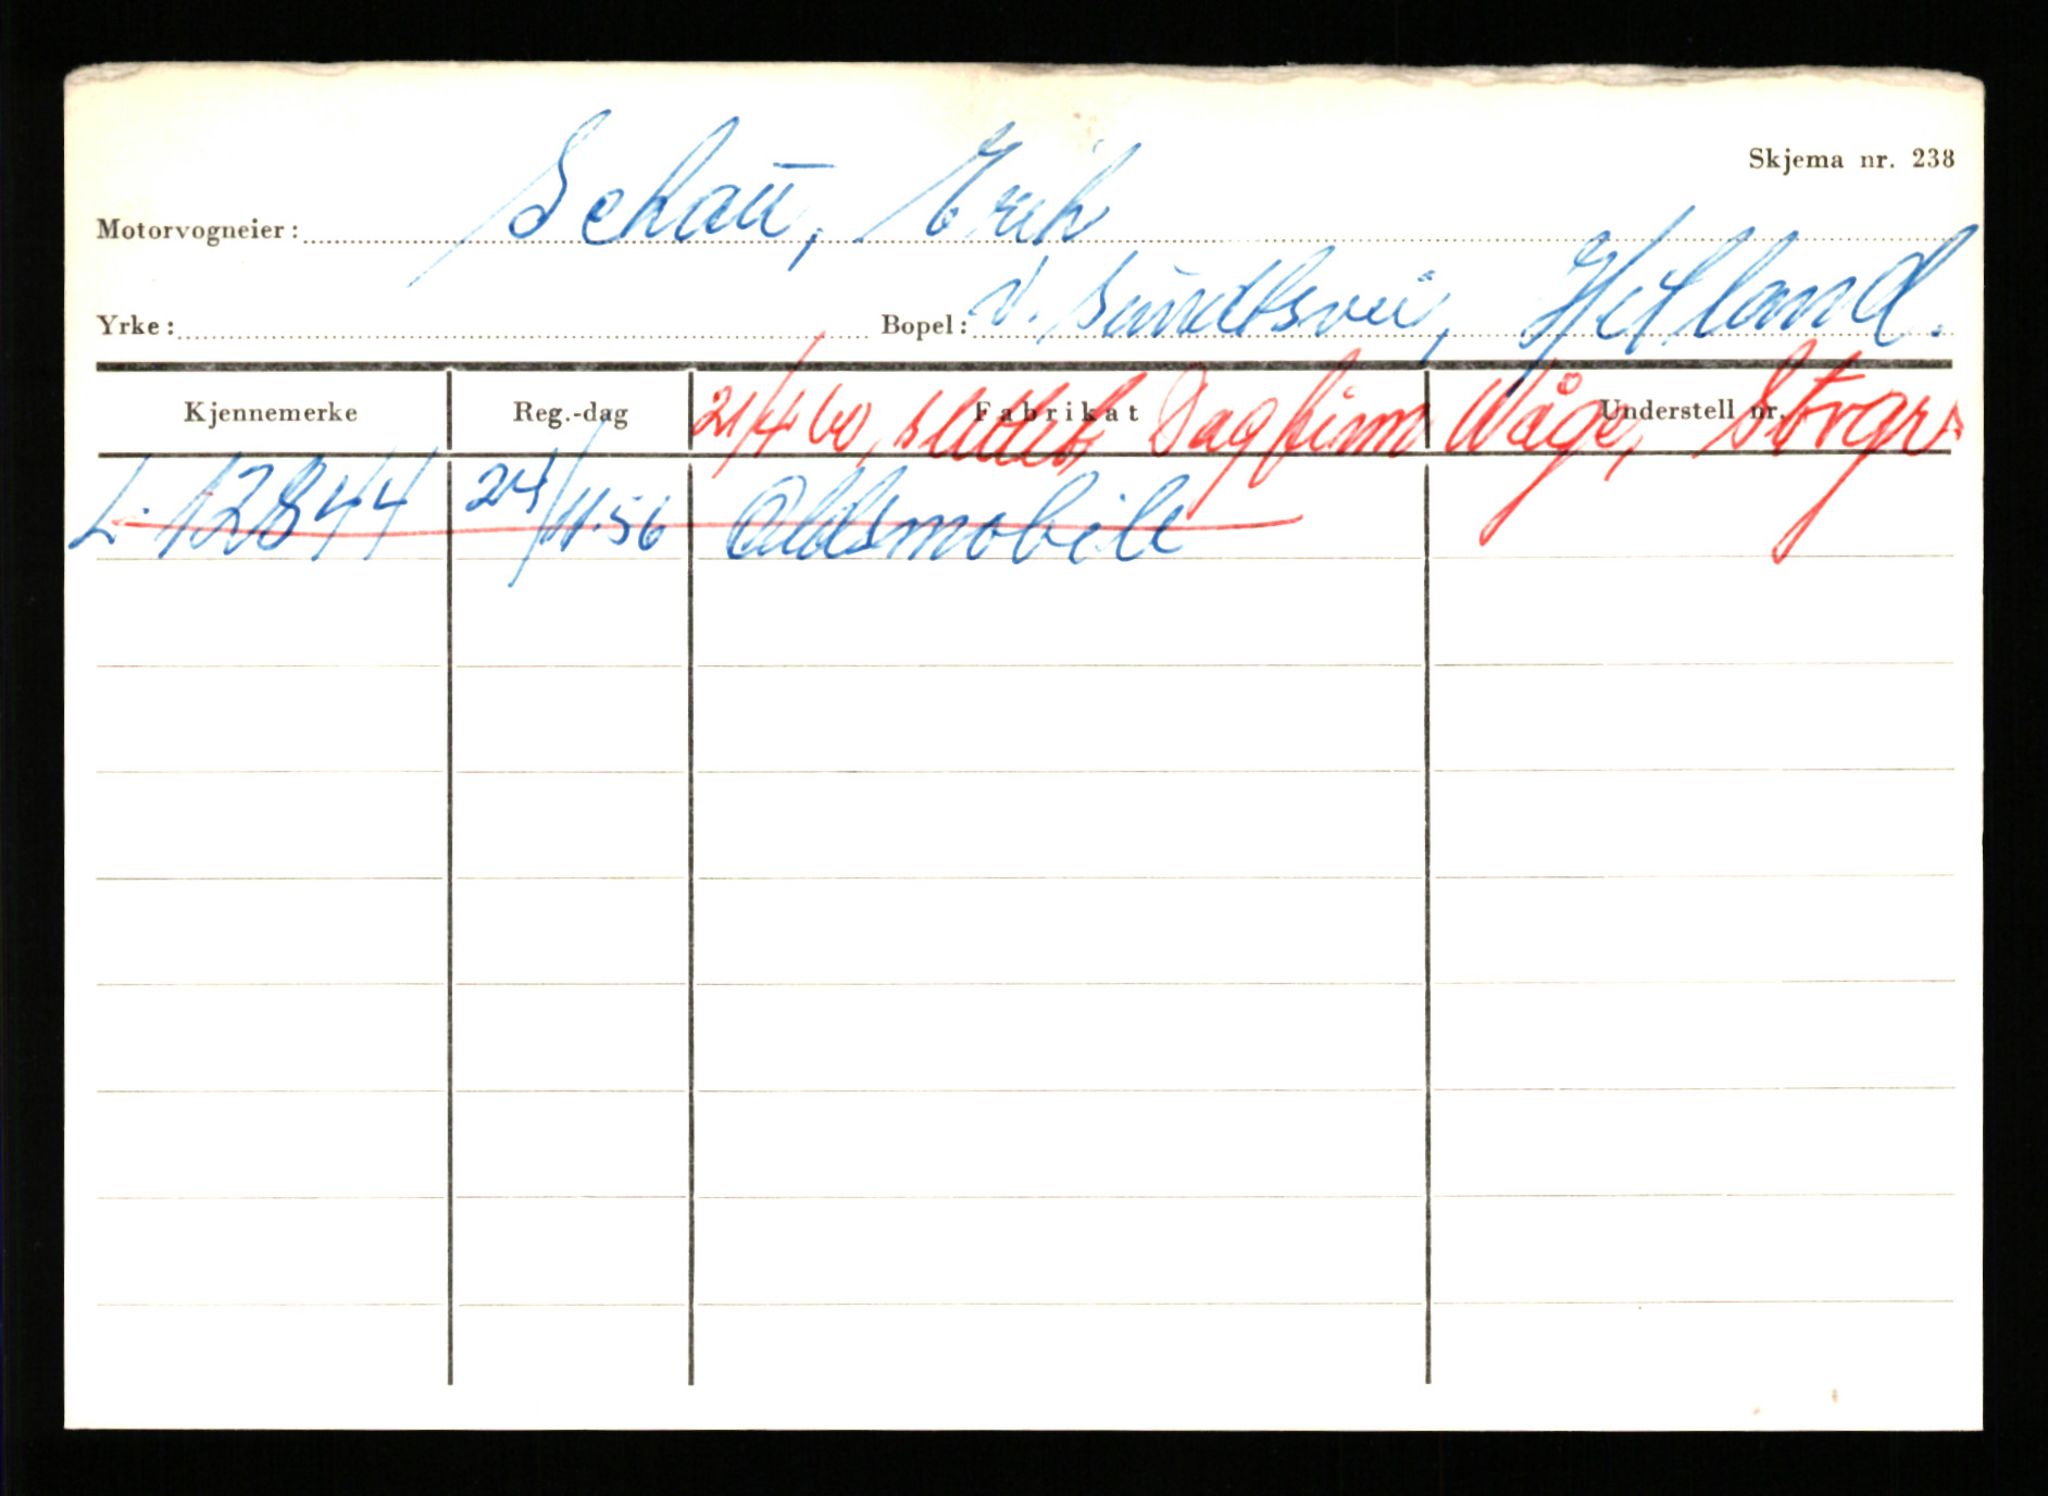 Skjema nr. 238
Motorvogneier: Schau, Erik
Yrke: Bopel: N. Sundtsvei, Hetland.
Kjennemerke Reg.-dag Fabrikat Understell nr.
21/4 60, slettet, Dagfinn Våge, Stvgr.
L-12844 24/11.56 Oldsmobile